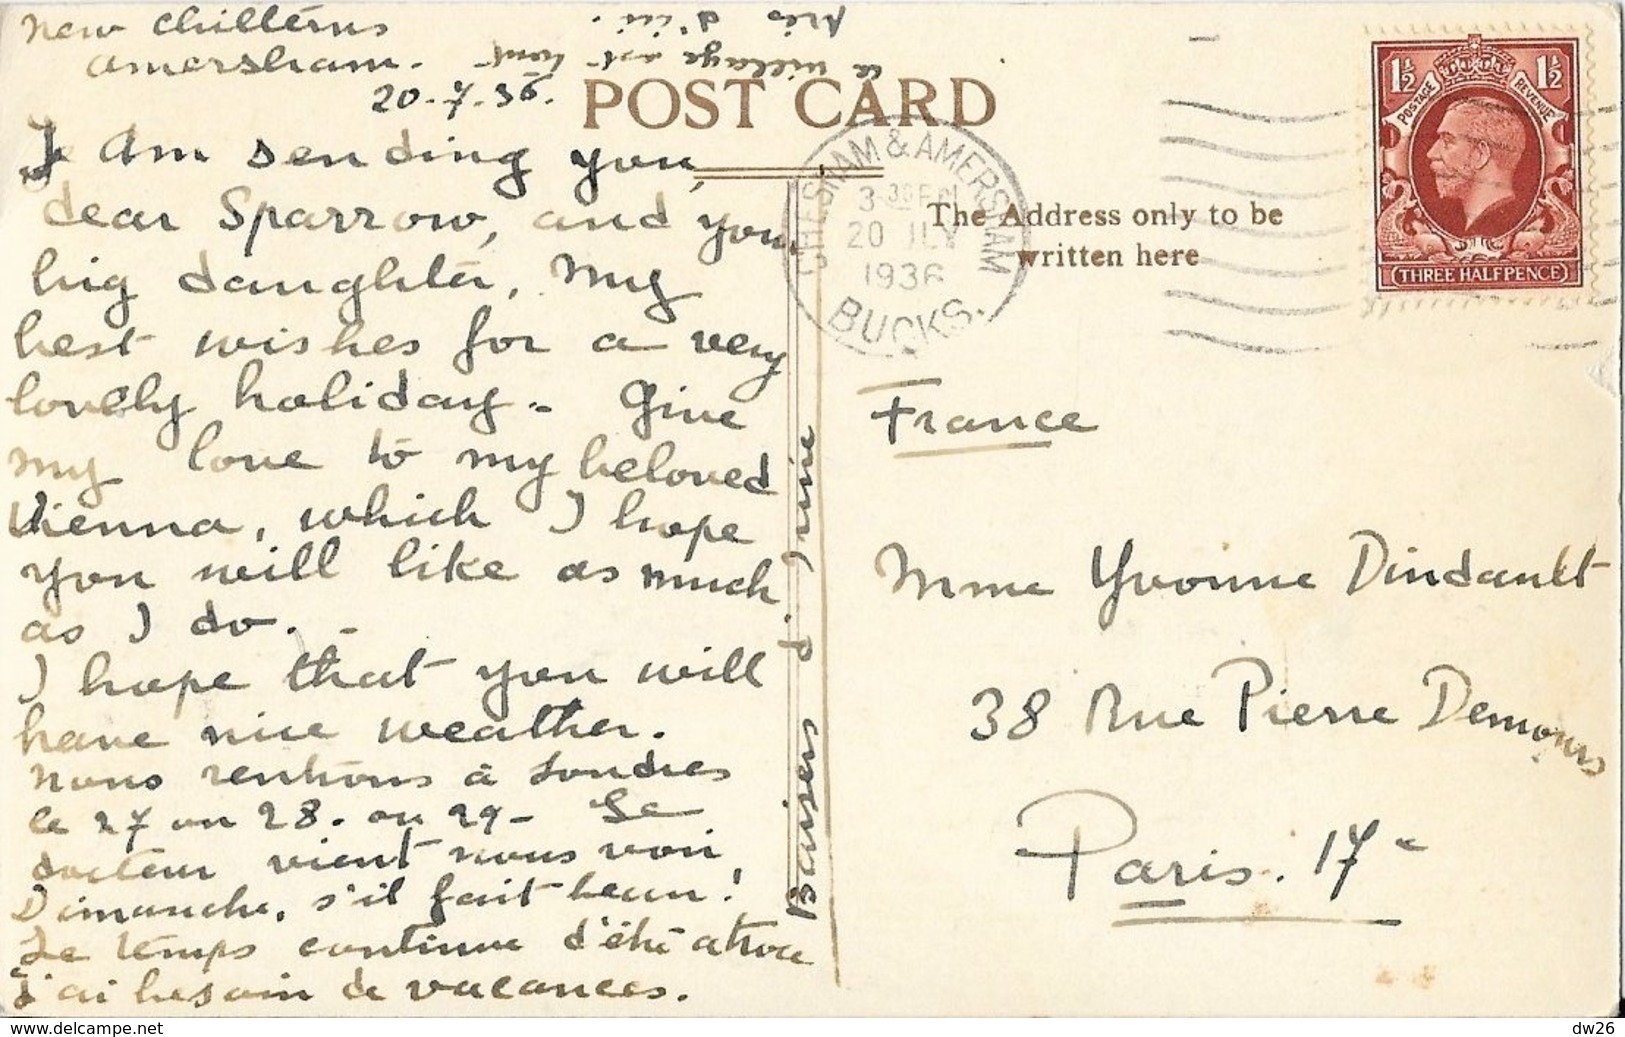 New Chilterns
Amersham.
20-7-36.
le village est tout
près d'ici.
POST CARD
I Am sending you,
dear Sparrow, and your
big daughter, My
best wishes for a very
lovely holiday. - Give
my love to my beloved
Vienna, which I hope
you will like as much
as I do. -
I hope that you will
have nice weather.
Nous rentrons à Londres
le 27 ou 28. ou 29- Le
docteur vient nous voir
Dimanche, s'il fait beau!
Le temps continue d'être atroce
J'ai besoin de vacances.
Baisers d'Irine
CHESHAM & AMERSHAM
3.30 PM
20 JLY
1936
BUCKS.
The Address only to be
written here
1½ 1½
POSTAGE REVENUE
THREE HALFPENCE
France
Mme Yvonne Dindault
38 Rue Pierre Demours
Paris. 17e
www.delcampe.net
dw26